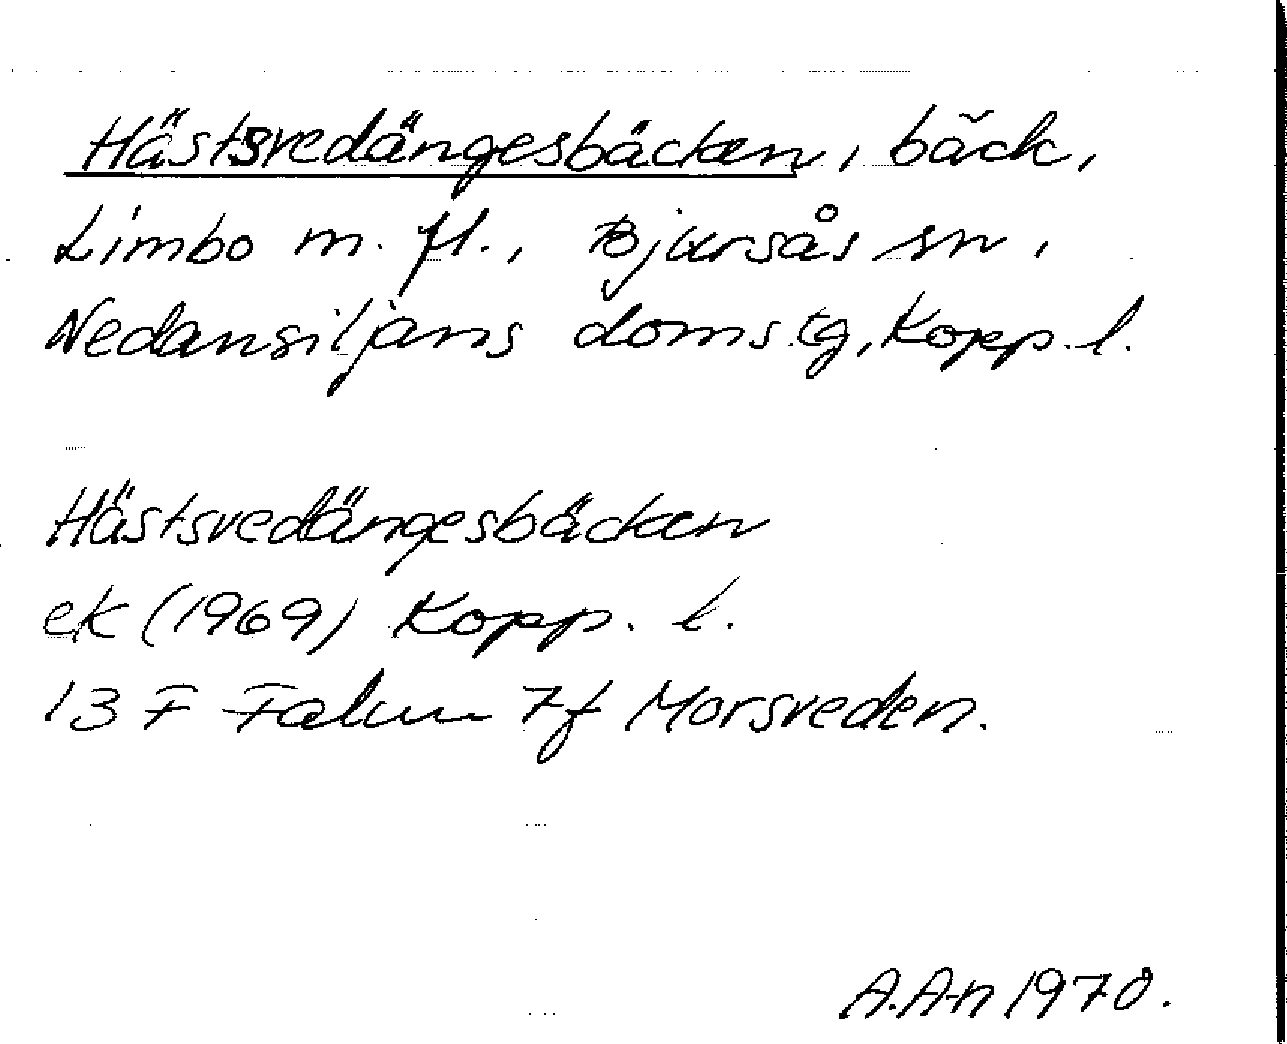 Hästsvedängesbäcken, bäck,
Limbo m. fl., Bjursås sn,
Nedansiljans doms.tg, Kopp. l.
Hästsvedängesbäcken
ek (1969) Kopp. l.
13 F Falun 7f Morsveden.
A.A-n 1970.